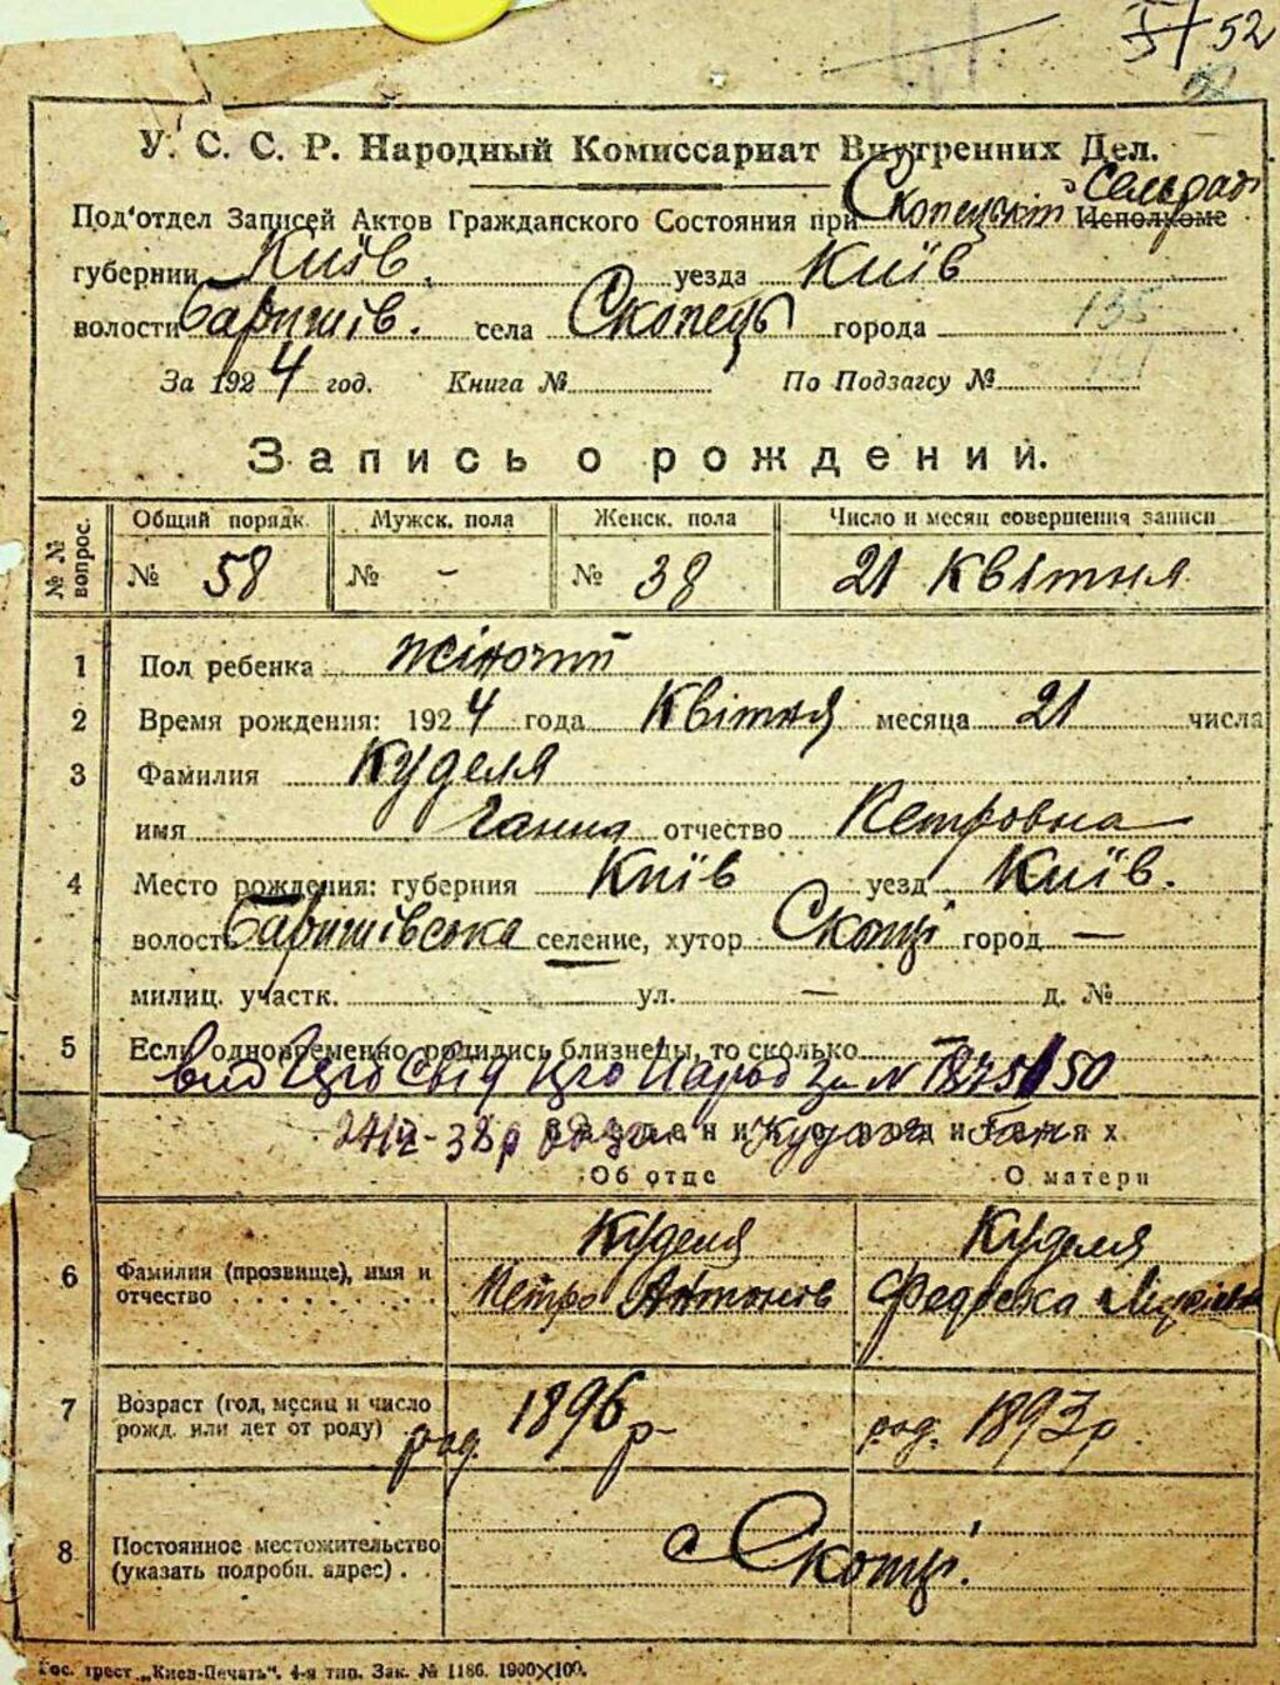 52
У. С. С. Р. Народный Комиссариат Внутренних Дел.
Сельрад
Под'отдел Записей Актов Гражданского Состояния при Скопецькій Исполкоме
губернии Київ. уезда Київ
волости Баришів. села Скопець города 135
За 1924 год. Книга № По Подзагсу №
Запись о рождении.
№ № вопрос. Общий порядк. Мужск. пола Женск. пола Число и месяц совершения записи
№ 58 № - № 38 21 Квітня
1 Пол ребенка жіночий
2 Время рождения: 1924 года Квітня месяца 21 числа
3 Фамилия Куделя
имя Ганна отчество Петровна
4 Место рождения: губерния Київ уезд Київ.
волость Баришівська селение, хутор Скопці город —
милиц. участк. ул. — д. №
5 Если одновременно родились близнецы, то сколько —
Сведения о родителях
Об отце О матери
Куделя Куделя
6 Фамилия (прозвище), имя и
отчество Петро Антонов Федоска
7 Возраст (год, месяц и число
рожд. или лет от роду) род. 1896 р- род. 1893 р.
8 Постоянное местожительство
(указать подробн. адрес) . . с Скопці.
Гос. трест „Киев-Печать“. 4-я тип. Зак. № 1186. 1900×100.